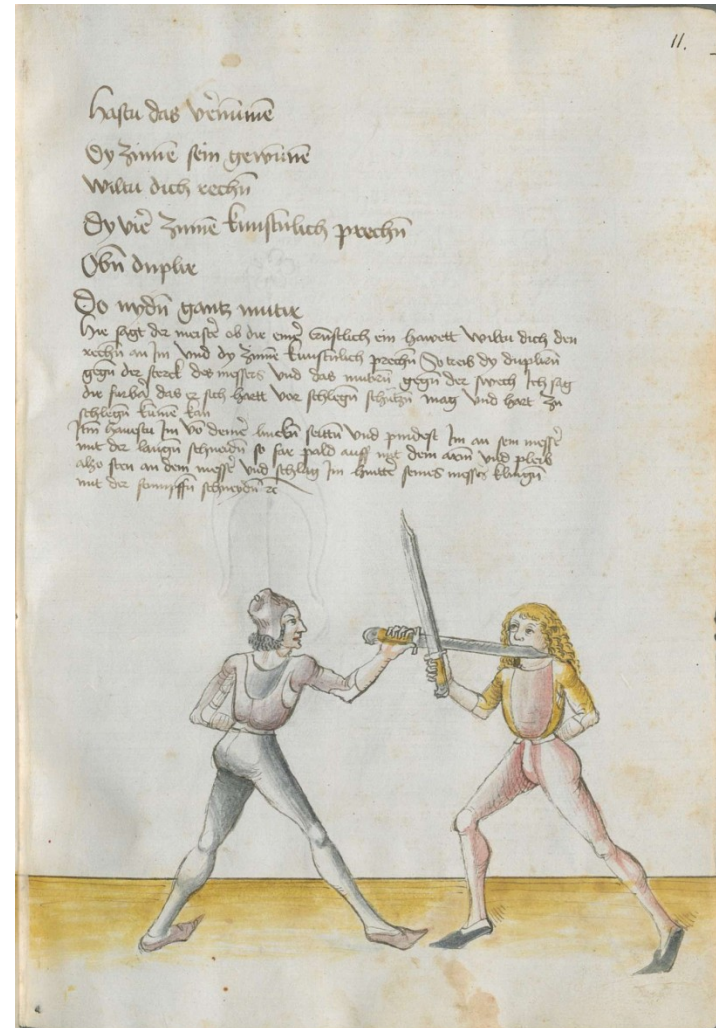 11.
Hastu das vernümē
Dy zinnē sein gewünē
Wiltu dich rechñ
Dy vier zinnē kunstulich prechñ
Obñ duplir
Do nydñ gantz mutir
Hie sagt der meister ob dir einer künstlich ein hawett wiltu dich den
rechñ an jm und dy zinnē kunstulich prechñ So treib dy duplirñ
gegñ der sterck des messers und das mutirñ gegñ der swech Ich sag
dir furbar das er sich hartt vor schlegñ schützñ mag und hart zu
schlegñ kumē kan
Itm hawestu jm vō deiner linckñ seittñ und pindest jm an sein messer
mit der langñ schneidñ so far pald auff mit dem arm und pleib
also sten an dem messer und schlag jm hinter seines messers klingñ
mit der scharpffñ schneydñ ꝛc